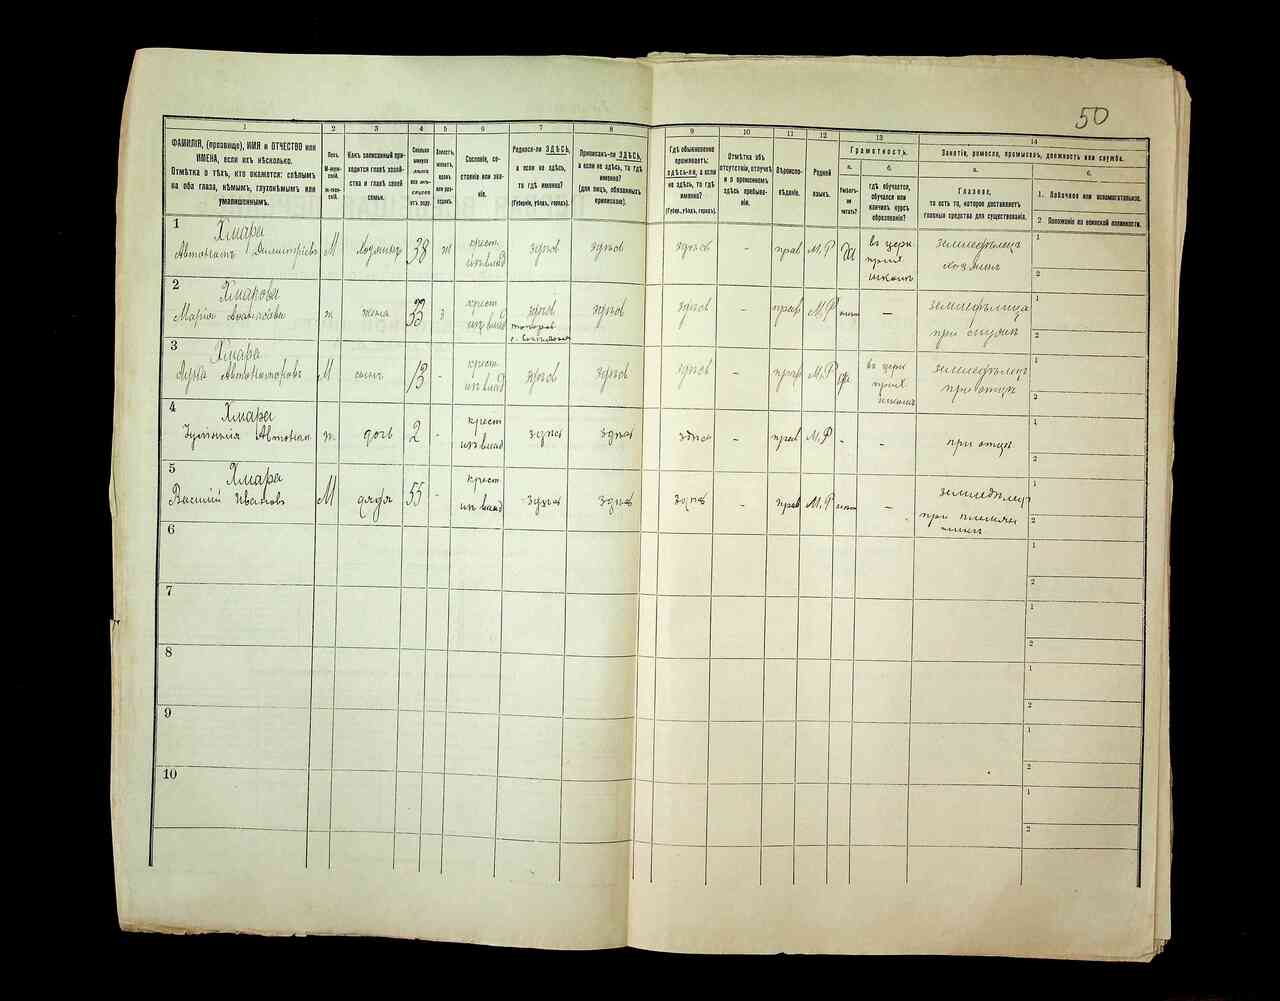 50
1 2 3 4 5 6 7 8 9 10 11 12 13 14
ФАМИЛІЯ, (прозвище), ИМЯ и ОТЧЕСТВО или
ИМЕНА, если ихъ нѣсколько.
Отмѣтка о тѣхъ, кто окажется: слѣпымъ
на оба глаза, нѣмымъ, глухонѣмымъ или
умалишеннымъ.
Полъ.
М-мужской.
ж-женский.
Какъ записанный при-
ходится главѣ хозяй-
ства и главѣ своей
семьи.
Сколько
минуло
лѣтъ
или мѣ-
сяцевъ
отъ роду.
Холостъ,
женатъ,
вдовъ
или раз-
веденъ.
Сословіе, со-
стояніе или зва-
ніе.
Родился-ли ЗДѢСЬ,
а если не здѣсь,
то гдѣ именно?
(Губернія, уѣздъ, городъ).
Приписанъ-ли ЗДѢСЬ,
а если не здѣсь, то гдѣ
именно?
(для лицъ, обязанныхъ
припискою).
Гдѣ обыкновенно
проживаетъ:
здѣсь-ли, а если
не здѣсь, то гдѣ
именно?
(Губер., уѣздъ, городъ).
Отмѣтка объ
отсутствіи, отлучкѣ
и о временномъ
здѣсь пребыва-
ніи.
Вѣроиспо-
вѣданіе.
Родной
языкъ.
Грамотность.
а.
Умѣетъ-
ли
читать?
б.
гдѣ обучается,
обучался или
кончилъ курсъ
образованія?
Занятіе, ремесло, промыселъ, должность или служба.
а.
Главное,
то есть то, которое доставляетъ
главныя средства для существованія.
б.
1. Побочное или вспомогательное.
2. Положеніе по воинской повинности.
1
Хмара
М хозяинъ 38 ж крест здѣсь здѣсь здѣсь - прав М.Р да въ церк
прих
школѣ
земледѣлецъ
хозяинъ
1
2
2
Хмарова
Марія
ж жена 33 з крест здѣсь здѣсь здѣсь - прав М.Р - земледѣлица
при мужѣ
1
2
3
Хмара
М сынъ 13 - крест здѣсь здѣсь здѣсь - прав М.Р да въ церк
прих
школѣ
земледѣлецъ
при отцѣ
1
2
4
Хмара
ж дочь 2 - крест здѣсь здѣсь здѣсь - прав М.Р - - при отцѣ
1
2
5
Хмара
Василій Ивановъ М дядя 55 - крест здѣсь здѣсь здѣсь - прав М.Р - земледѣлец
при племян
никѣ
1
2
6
1
2
7
1
2
8
1
2
9
1
2
10
1
2